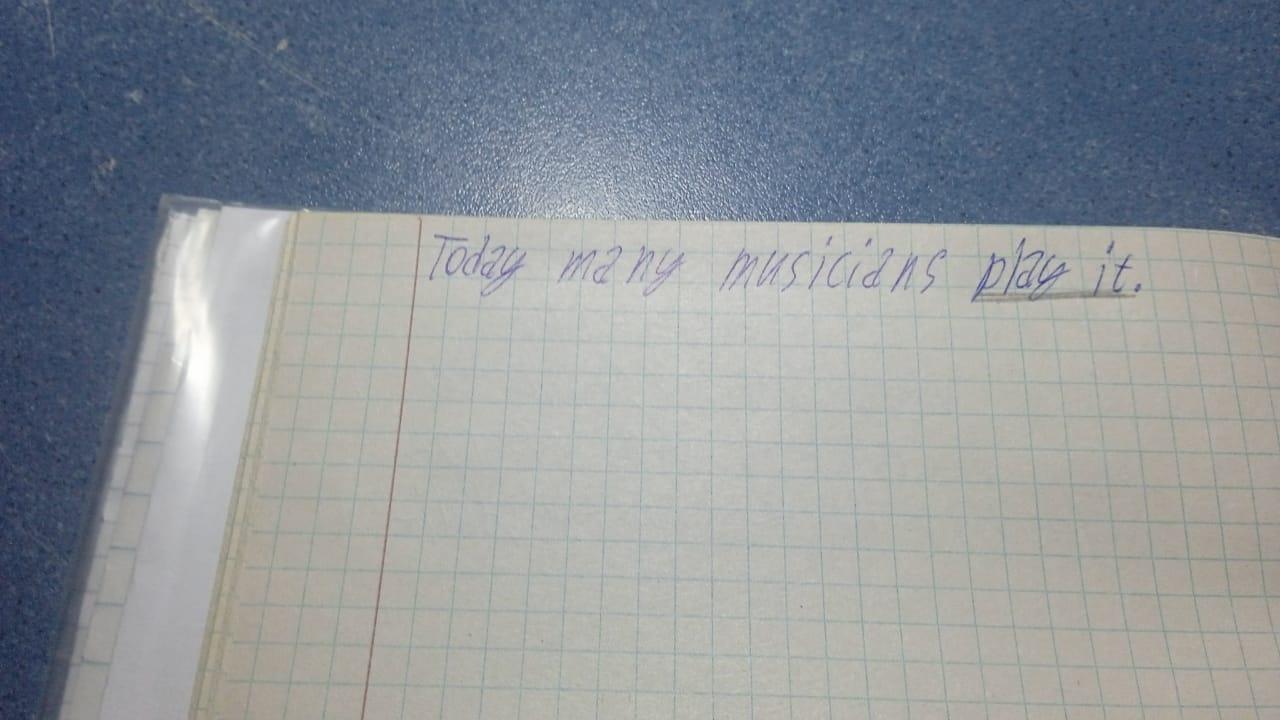 Today many musicians play it.